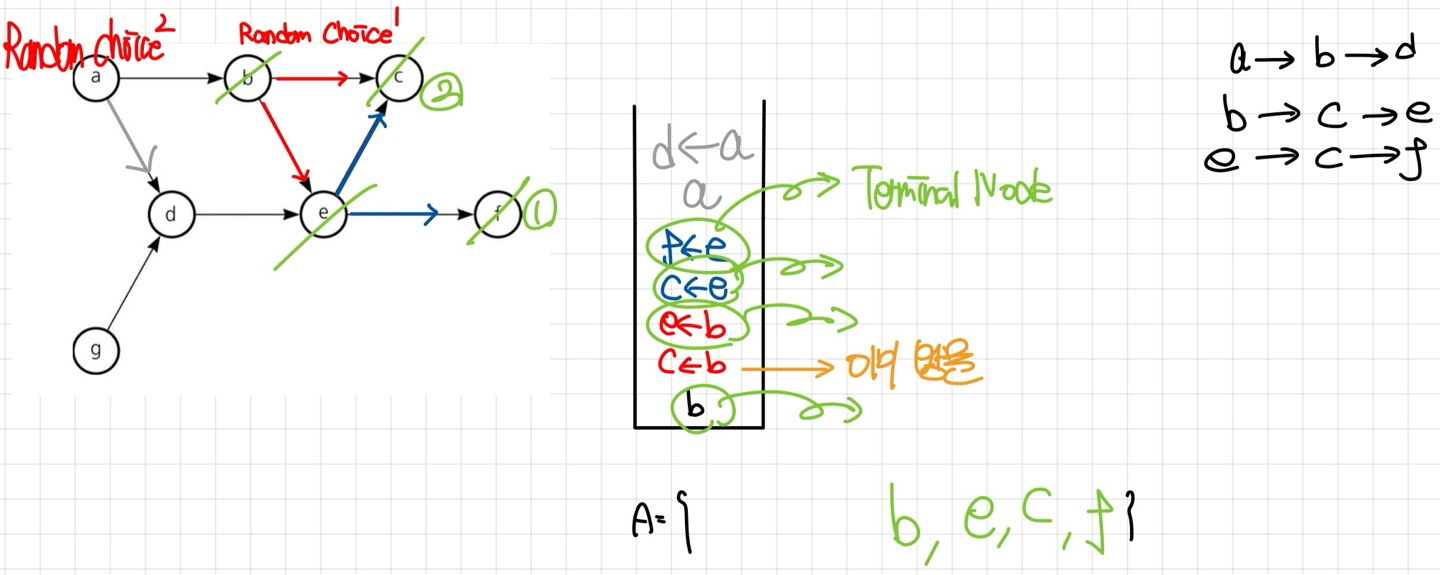 Random Choice 2
Random Choice 1
a
b
c
②
d
e
f
①
g
d←a
a
f←e
Terminal Node
c←e
e←b
c←b → 이미
b
A={ b, e, c, f }
a → b → d
b → c → e
e → c → f